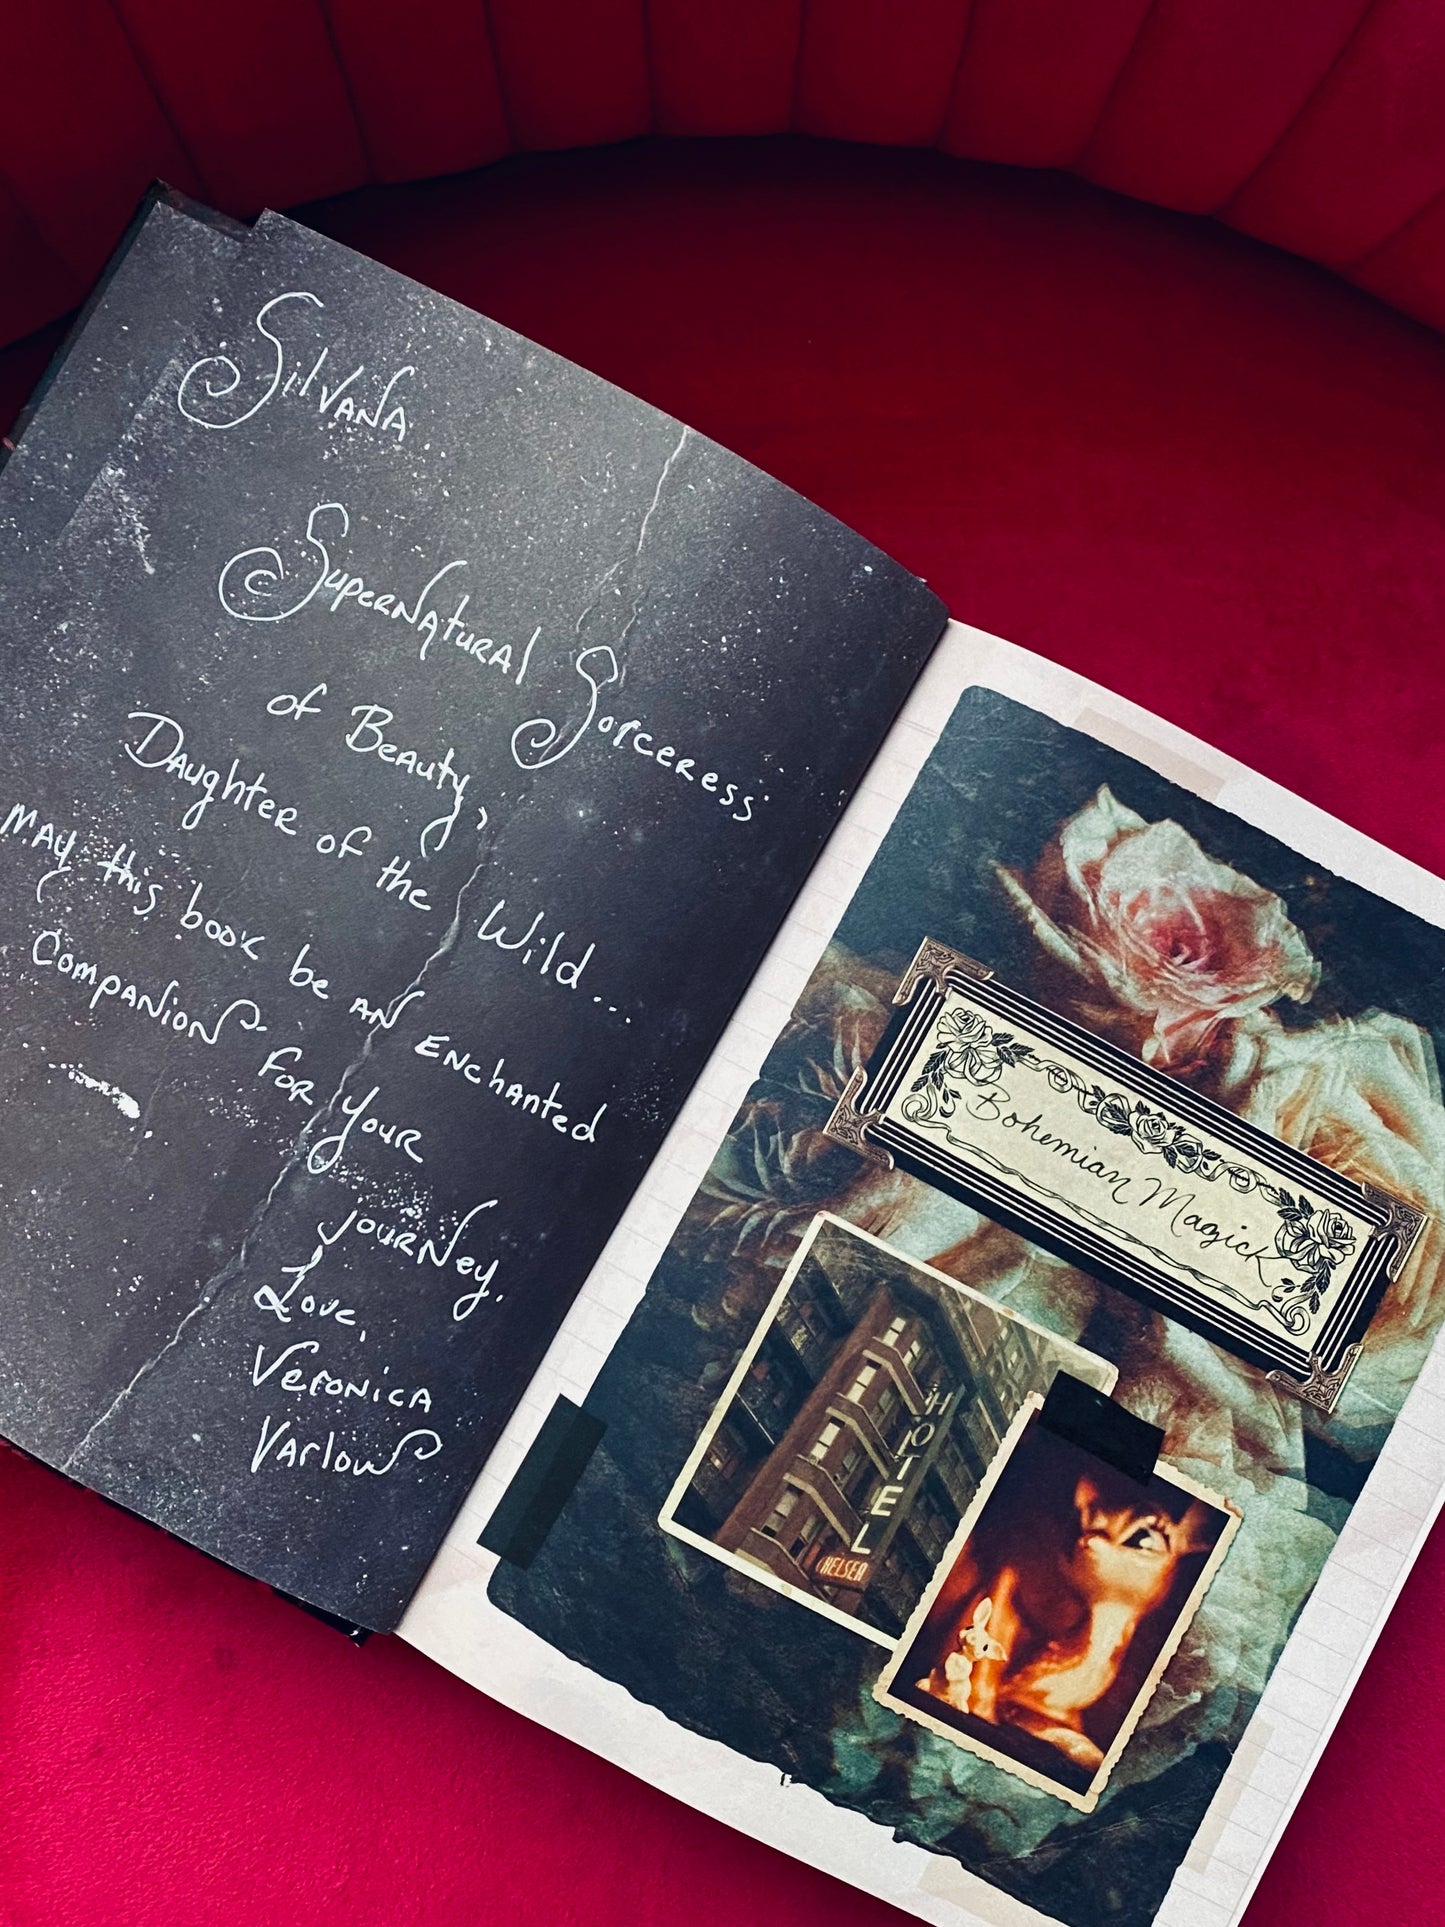 Silvana
Supernatural Sorceress
of Beauty,
Daughter of the Wild...
may this book be an enchanted
companion for your
journey.
Love,
Veronica
Varlow
Bohemian Magick
HOTEL
CHELSEA